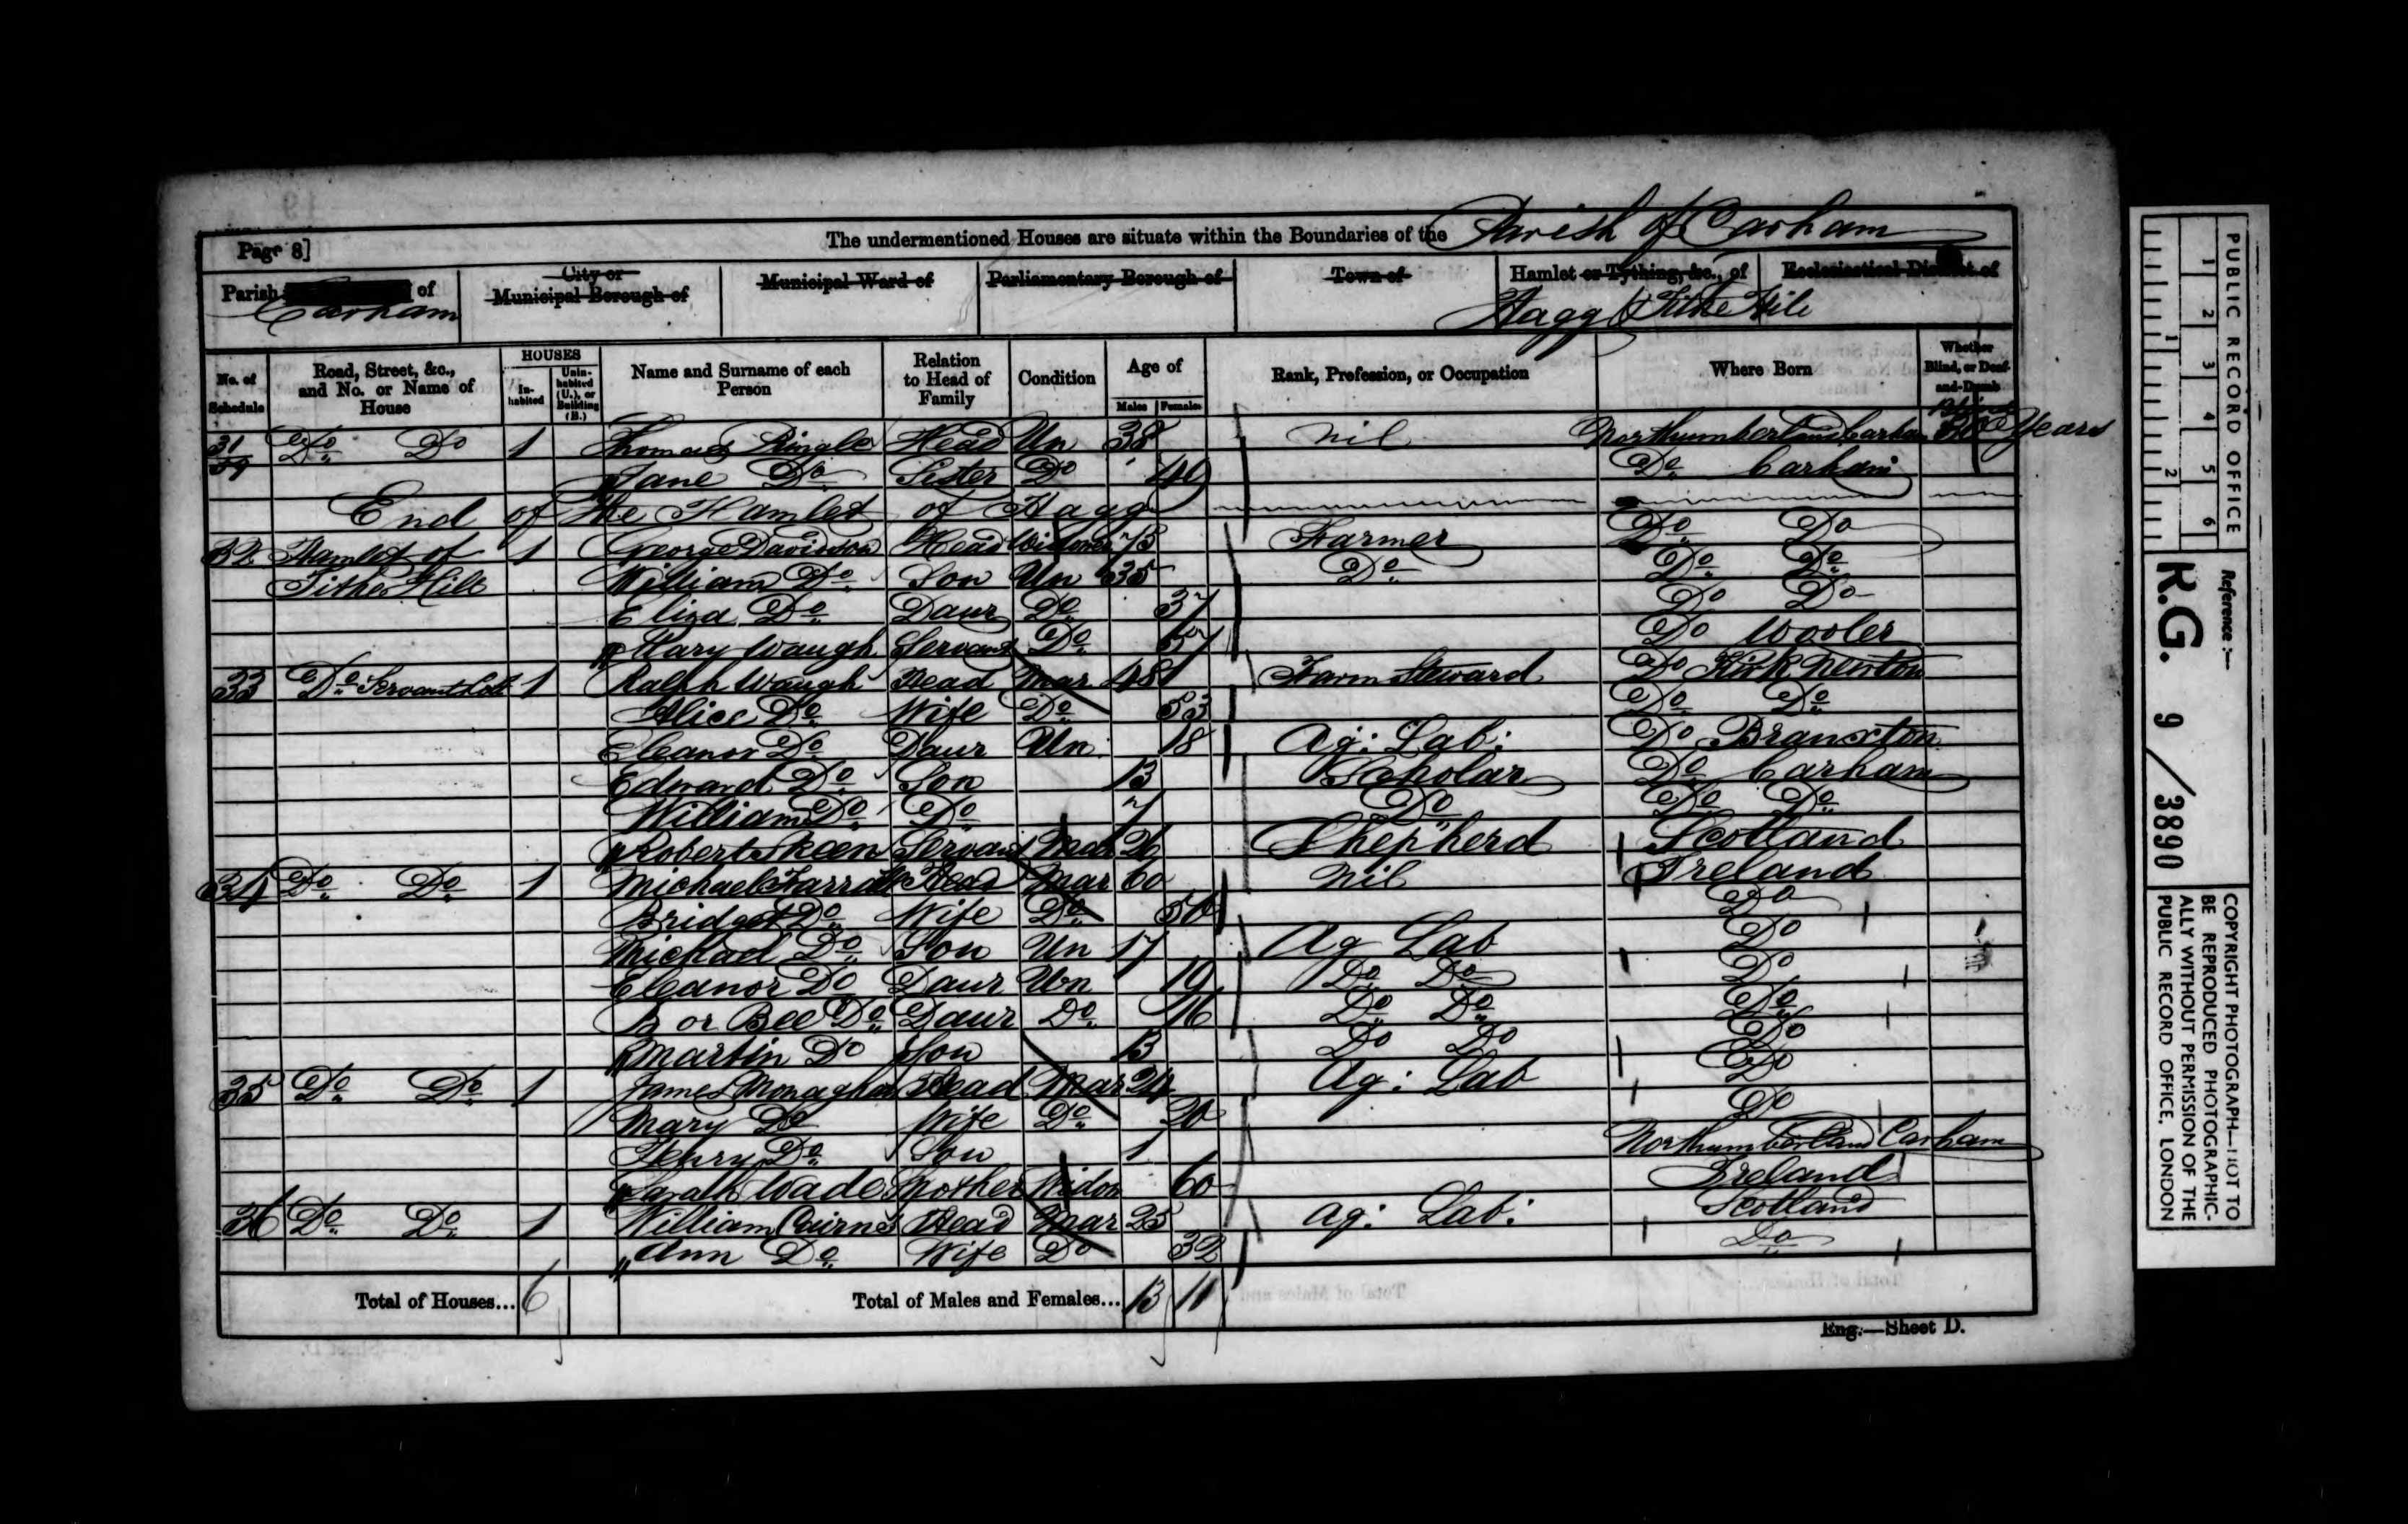 Page 8] The undermentioned Houses are situate within the Boundaries of the Parish of Carham
Parish of Carham City or Municipal Borough of Municipal Ward of Parliamentary Borough of Town of Hamlet or Tything, &c., of Hagg & Tithe Hill Ecclesiastical District of
No. of Schedule Road, Street, &c., and No. or Name of House HOUSES Inhabited Uninhabited (U.), or Building (B.) Name and Surname of each Person Relation to Head of Family Condition Age of Males Females Rank, Profession, or Occupation Where Born Whether Blind, or Deaf-and-Dumb
31 Do Do 1 Thomas Pringle Head Un 38 nil Northumberland Carham Years
Jane Do Sister Do 40 Do Carham
End of the Hamlet of Hagg
32 Hamlet of 1 George Davidson Head Widower 73 Farmer Do Do
Tithe Hill William Do Son Un 35 Do Do Do
Eliza Do Daur Do 37 Do Do
Mary Waugh Servant Do 57 Do Wooler
33 Do Servants Cott 1 Ralph Waugh Head Mar 48 Farm Steward Do Kirk Newton
Alice Do Wife Do 53 Do Do
Eleanor Do Daur Un 18 Ag: Lab: Do Branxton
Edward Do Son 13 Scholar Do Carham
William Do Do 7 Do Do Do
Robert Skeen Servant Mar 26 Shepherd Scotland
34 Do Do 1 Michael Head Mar 60 nil Ireland
Bridget Do Wife Do 50 Do
Michael Do Son Un 17 Ag Lab Do
Eleanor Do Daur Un 19 Do Do Do
B or Bee Do Daur Do 16 Do Do Do
Martin Do Son 13 Do Do Do
35 Do Do 1 James Monaghan Head Mar 24 Ag: Lab Do
Mary Do Wife Do 20 Do
Henry Do Son 1 Northumberland Carham
Sarah Wade Mother Widow 60 Ireland
36 Do Do 1 William Cairnes Head Mar 25 Ag: Lab: Scotland
Ann Do Wife Do 32 Do
Total of Houses... 6 Total of Males and Females... 13 11
Eng.—Sheet D.
PUBLIC RECORD OFFICE
1 2 3 4 5 6
1 2
Reference :—
R.G. 9 / 3890
COPYRIGHT PHOTOGRAPH—NOT TO
BE REPRODUCED PHOTOGRAPHIC-
ALLY WITHOUT PERMISSION OF THE
PUBLIC RECORD OFFICE, LONDON